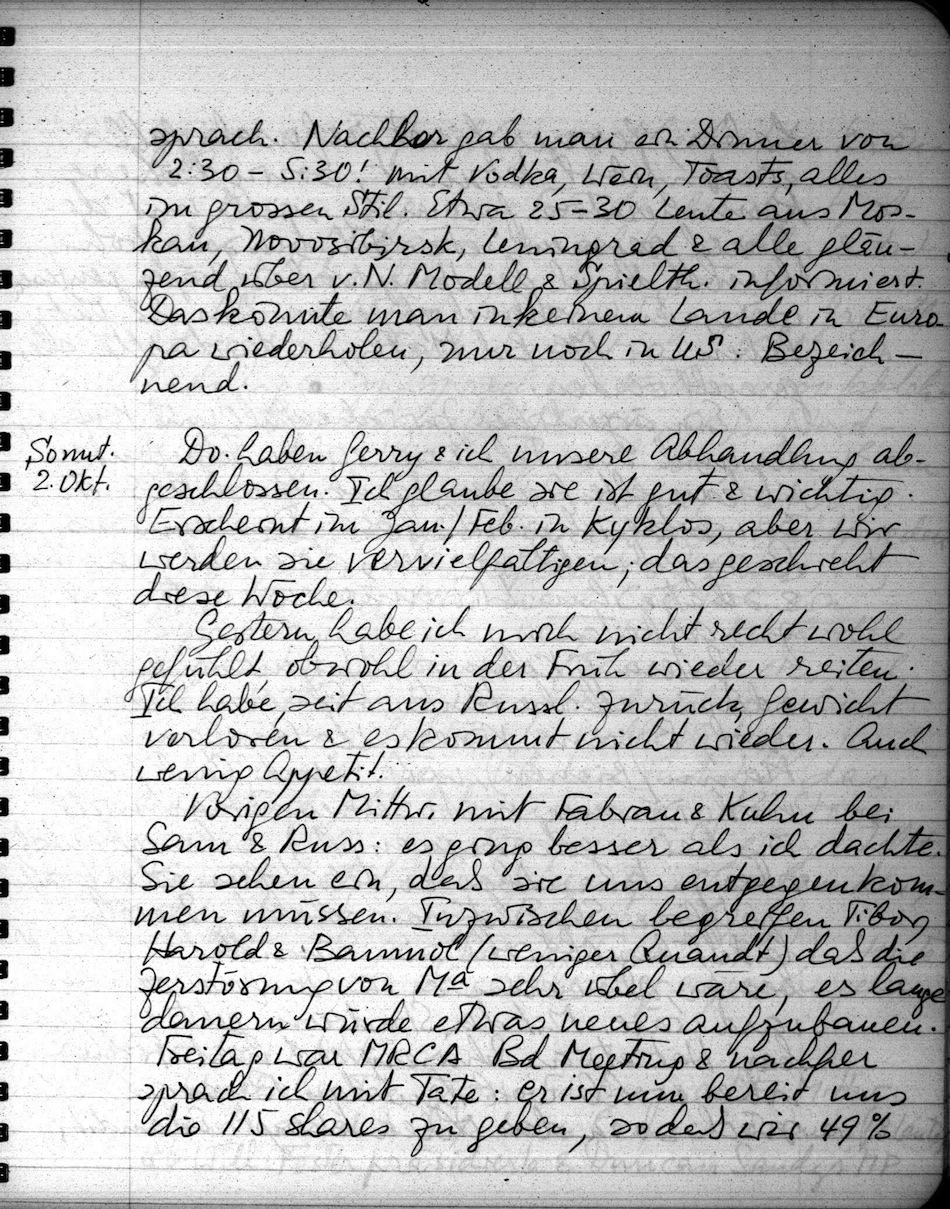 sprach. Nachher gab man ein Dinner von
2:30 – 5:30! mit Vodka, Wein, Toasts, alles
im grossen Stil. Etwa 25–30 Leute aus Mos-
kau, Novosibirsk, Leningrad & alle glän-
zend über v.N. Modell & Spielth. informiert.
Das könnte man in keinem Lande in Euro-
pa wiederholen, nur noch in US. Bezeich-
nend.
Sonnt.
2. Okt.
Do. haben Gerry & ich unsere Abhandlung ab-
geschlossen. Ich glaube sie ist gut & wichtig.
Erscheint im Jan./Feb. in Kyklos, aber wir
werden sie vervielfältigen; das geschieht
diese Woche.
Gestern habe ich mich nicht recht wohl
gefühlt, obwohl in der Früh wieder reiten.
Ich habe, seit aus Russl. zurück, Gewicht
verloren & es kommt nicht wieder. Auch
wenig Appetit.
Vorigen Mittw. mit Fabian & Kuhn bei
Sam & Russ: es ging besser als ich dachte.
Sie sehen ein, daß sie uns entgegenkom-
men müssen. Inzwischen begreifen Tibor,
Harold & Baumol (weniger Quandt) daß die
Zerstörung von Ma sehr übel wäre, es lange
dauern würde etwas neues aufzubauen.
Freitag war MRCA Bd Meeting & nachher
sprach ich mit Tate: er ist nun bereit uns
die 115 shares zu geben, sodaß wir 49%